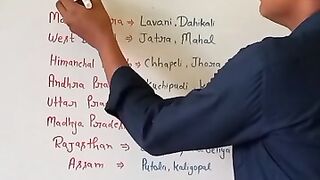 ⇒ Lavani, Dahikali
West ⇒ Jatra, Mahal
Himanchal ⇒ Chhapeli, Jhora
Andhra Pra Kuchipudi
Uttar Prad
Madhya Pradesh
Rajasthan ⇒
Assam ⇒ Putola, Kaligopal